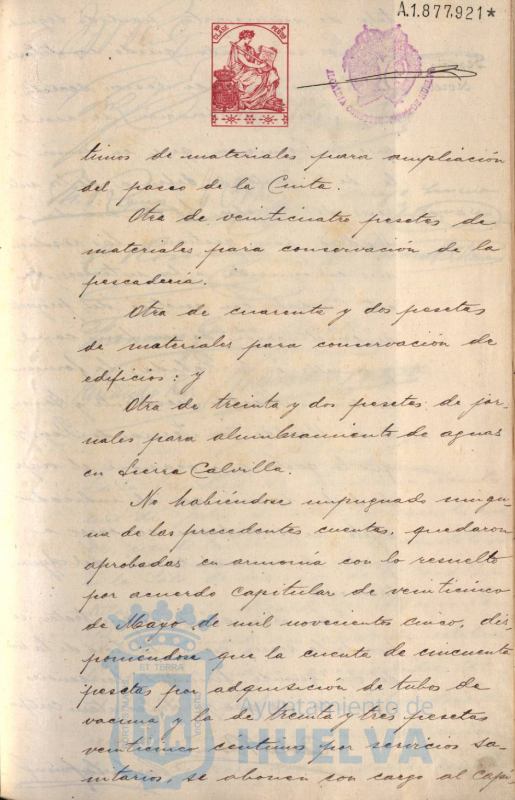 A.1.877,921*
timos de materiales para ampliación
del paseo de la Cinta.
Otra de veinticuatro pesetas de
materiales para conservación de la
pescadería.
Otra de cuarenta y dos pesetas
de materiales para conservación de
edificios: y
Otra de treinta y dos pesetas de jor-
nales para alumbramiento de aguas
en Sierra Calvilla.
No habiéndose impugnado ningu-
na de las precedentes cuentas, quedaron
aprobadas en armonía con lo resuelto
por acuerdo capitular de veinticinco
de Mayo de mil novecientos cinco, dis-
poniéndose que la cuenta de cincuenta
pesetas por adquisición de tubos de
vacuna y la de treinta y tres pesetas
veinticinco centimos por servicios sa-
nitarios, se abonen con cargo al Capi-
Ayuntamiento de
HUELVA